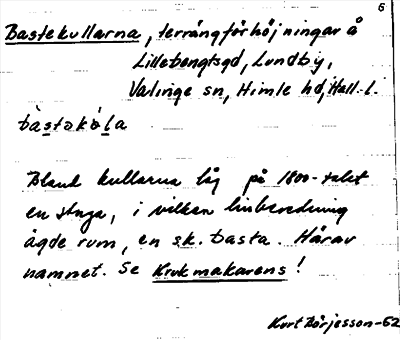 6
Bastekullarna, terrängförhöjningar å
Lillebengtsgd, Lundby,
Valinge sn, Himle hd, Hall. l.
bastəkɷla
Bland kullarna låg på 1800-talet
en stuga, i vilken linberedning
ägde rum, en s.k. basta. Härav
namnet. Se Krukmakarens!
Kurt Börjesson-62